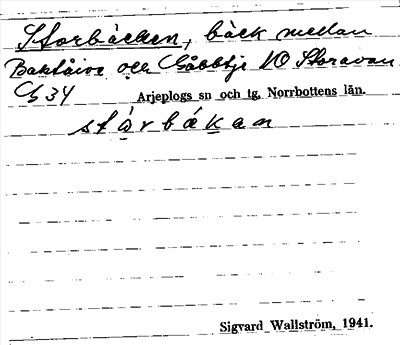 Storbäcken, bäck mellan
Baktåive och Gåbbtje NO Storavan
G 34
Arjeplogs sn och tg, Norrbottens län.
stórbákan
Sigvard Wallström, 1941.